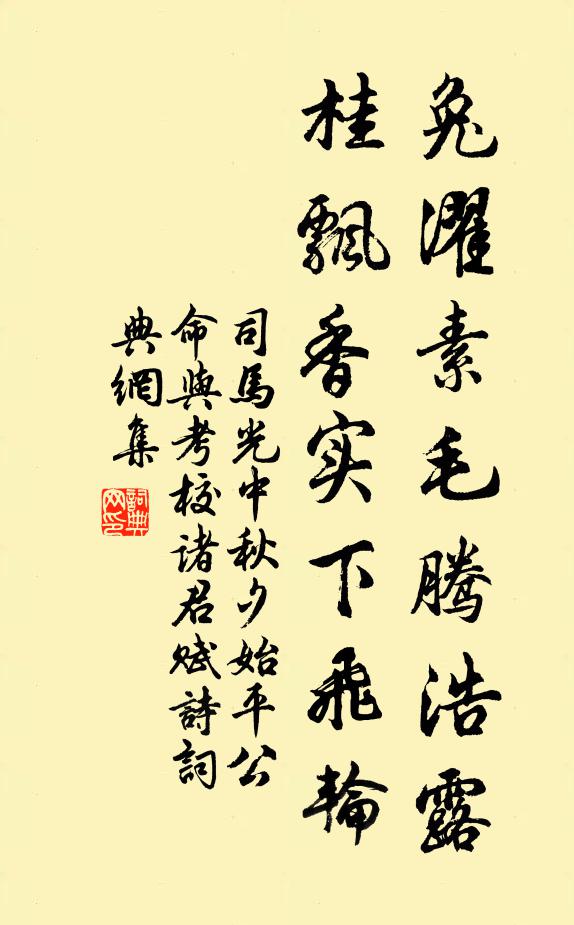 兔濯素毛腾浩露
桂飘香实下飛輪
司馬光中秋夕始平公
命與考校诸君赋詩詞
典網集
詞典
网印